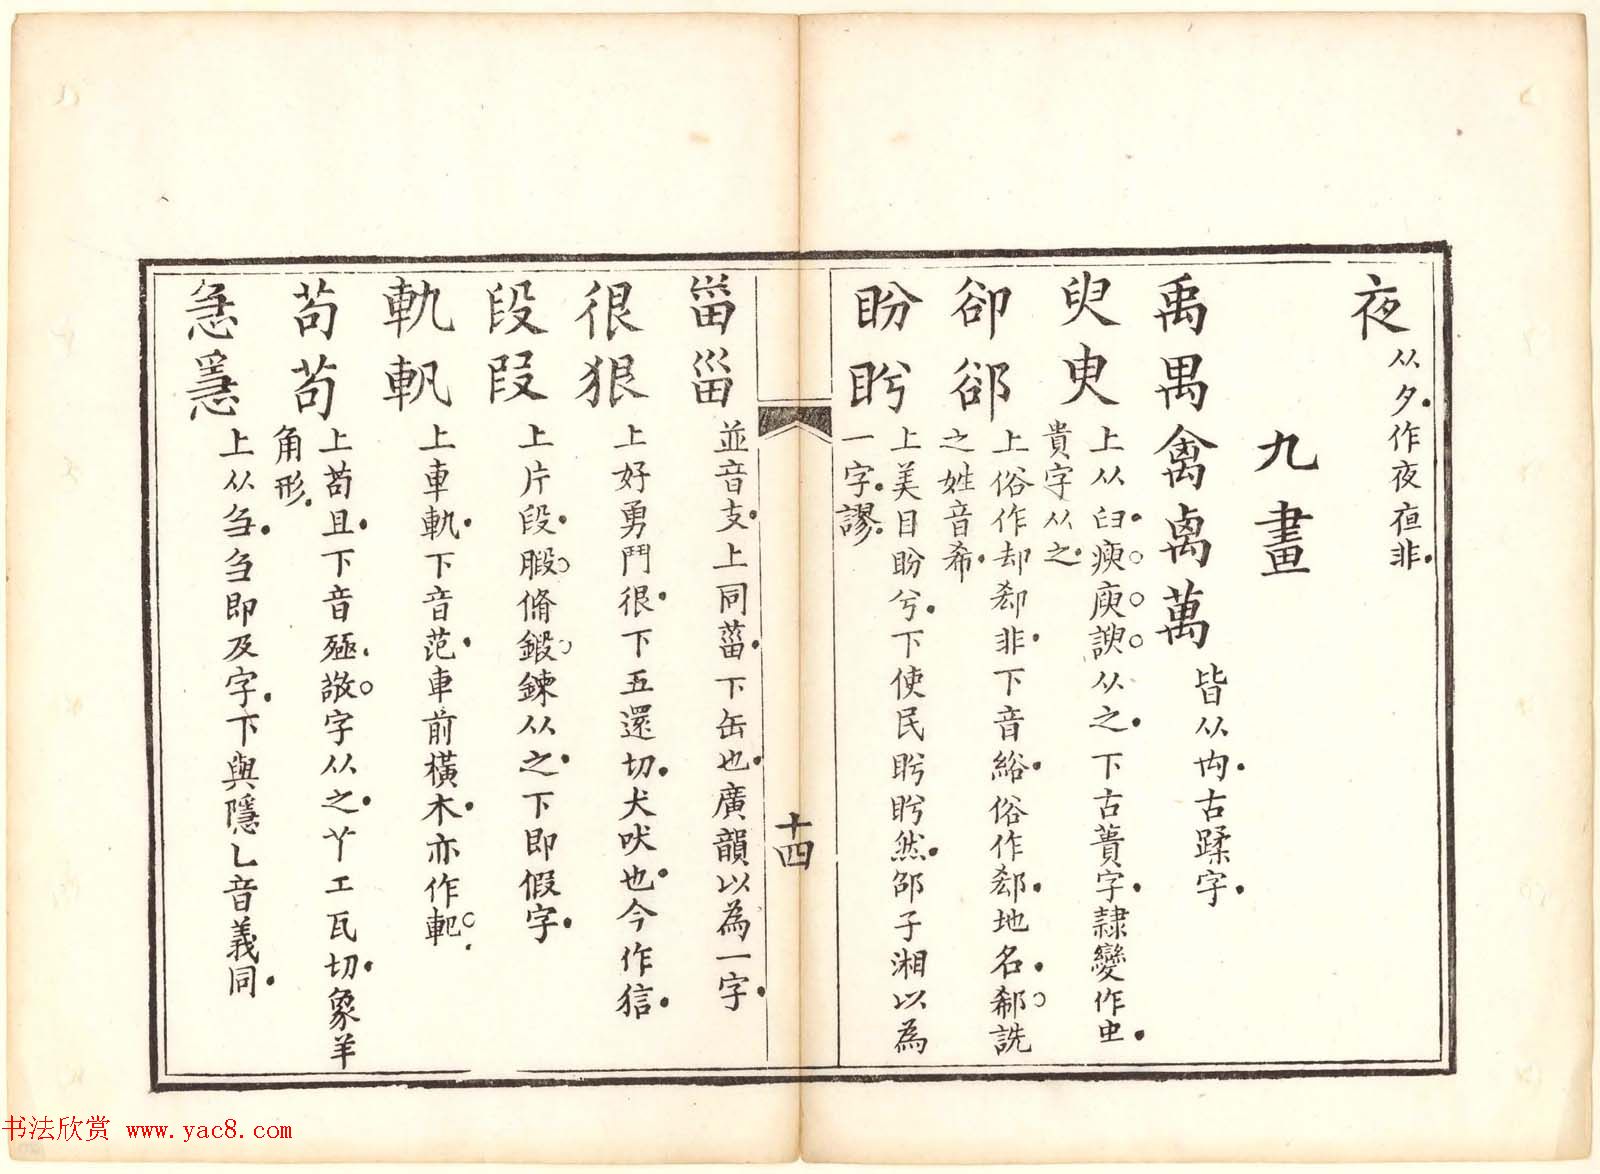 夜 从夕.作夜夜非.
九畫
禹禺禽离萬 皆从禸.古蹂字.
臾 上从臼.瘐○庾○諛○从之.下古蕢字.隸變作虫.
貴字从之.
卻郤 上俗作却𨚫非.下音綌.俗作郄.地名.郗○詵
之姓音希.
盼盻 上美目盼兮.下使民盻盻然.邵子湘以為
一字.謬.
十四
甾 並音支.上同葘.下缶也.廣韻以為一字.
很狠 上好勇鬥很.下五還切.犬吠也.今作狺.
段叚 上片段.腶○脩鍛○鍊从之.下即假字.
軌軓 上車軌.下音范.車前橫木.亦作軛○.
苟茍 上苟且.下音殛.敬○字从之.丫工瓦切.象羊
角形.
急㥯 上从刍.刍即及字.下與隱乚音義同.
书法欣赏 www.yac8.com